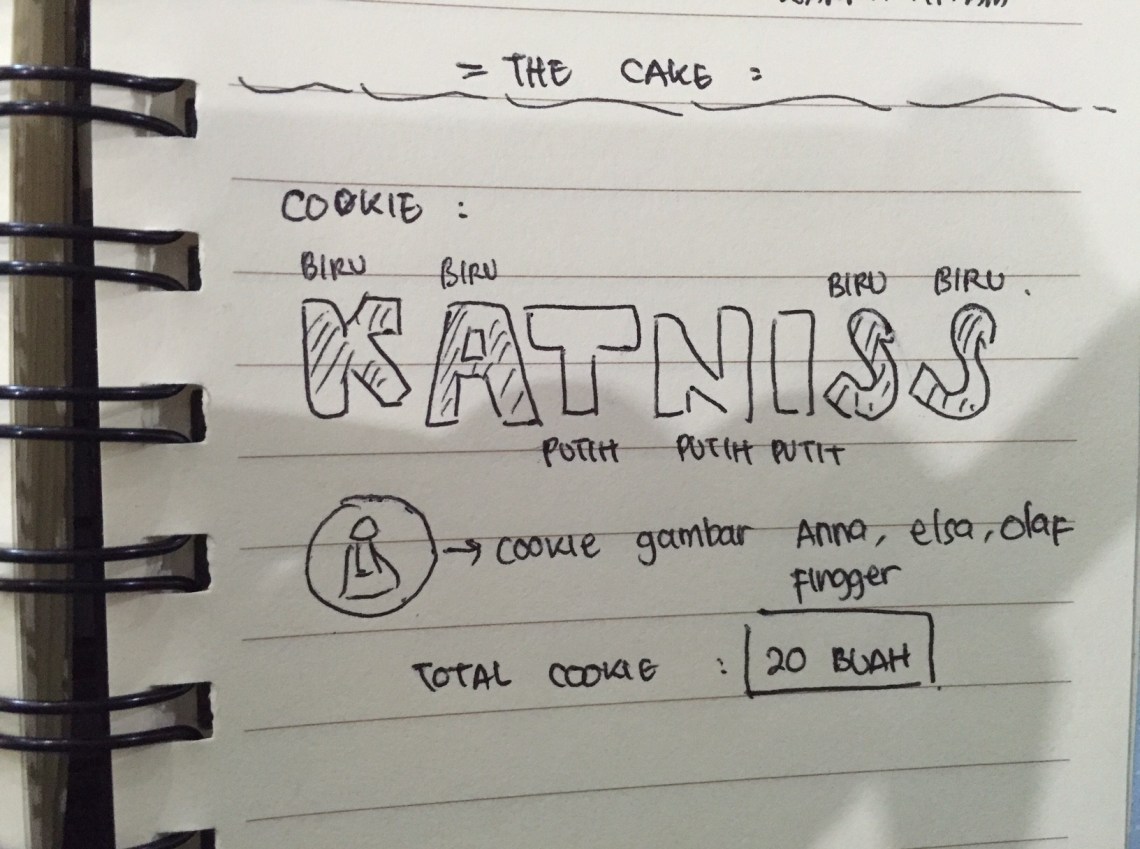 = THE CAKE :
COOKIE :
BIRU BIRU BIRU BIRU.
KATNISS
PUTIH PUTIH PUTIH
→ cookie gambar Anna, elsa, Olaf
Flngger
TOTAL COOKIE : 20 BUAH